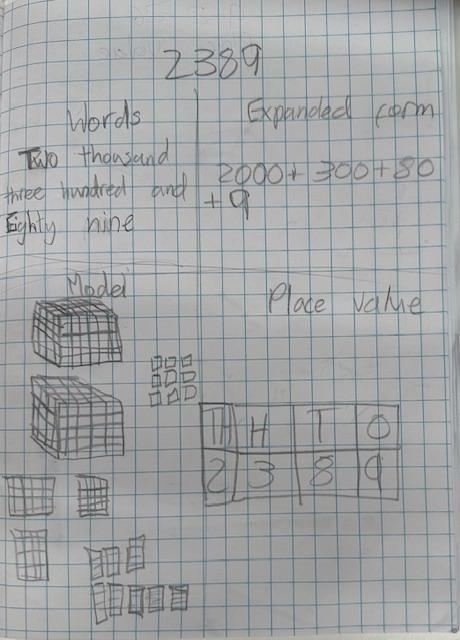 2389
Words
Two thousand
three hundred and
Eighty nine
Expanded form
2000+ 300+80
+ 9
Model
Place value
TH H T O
2 3 8 9